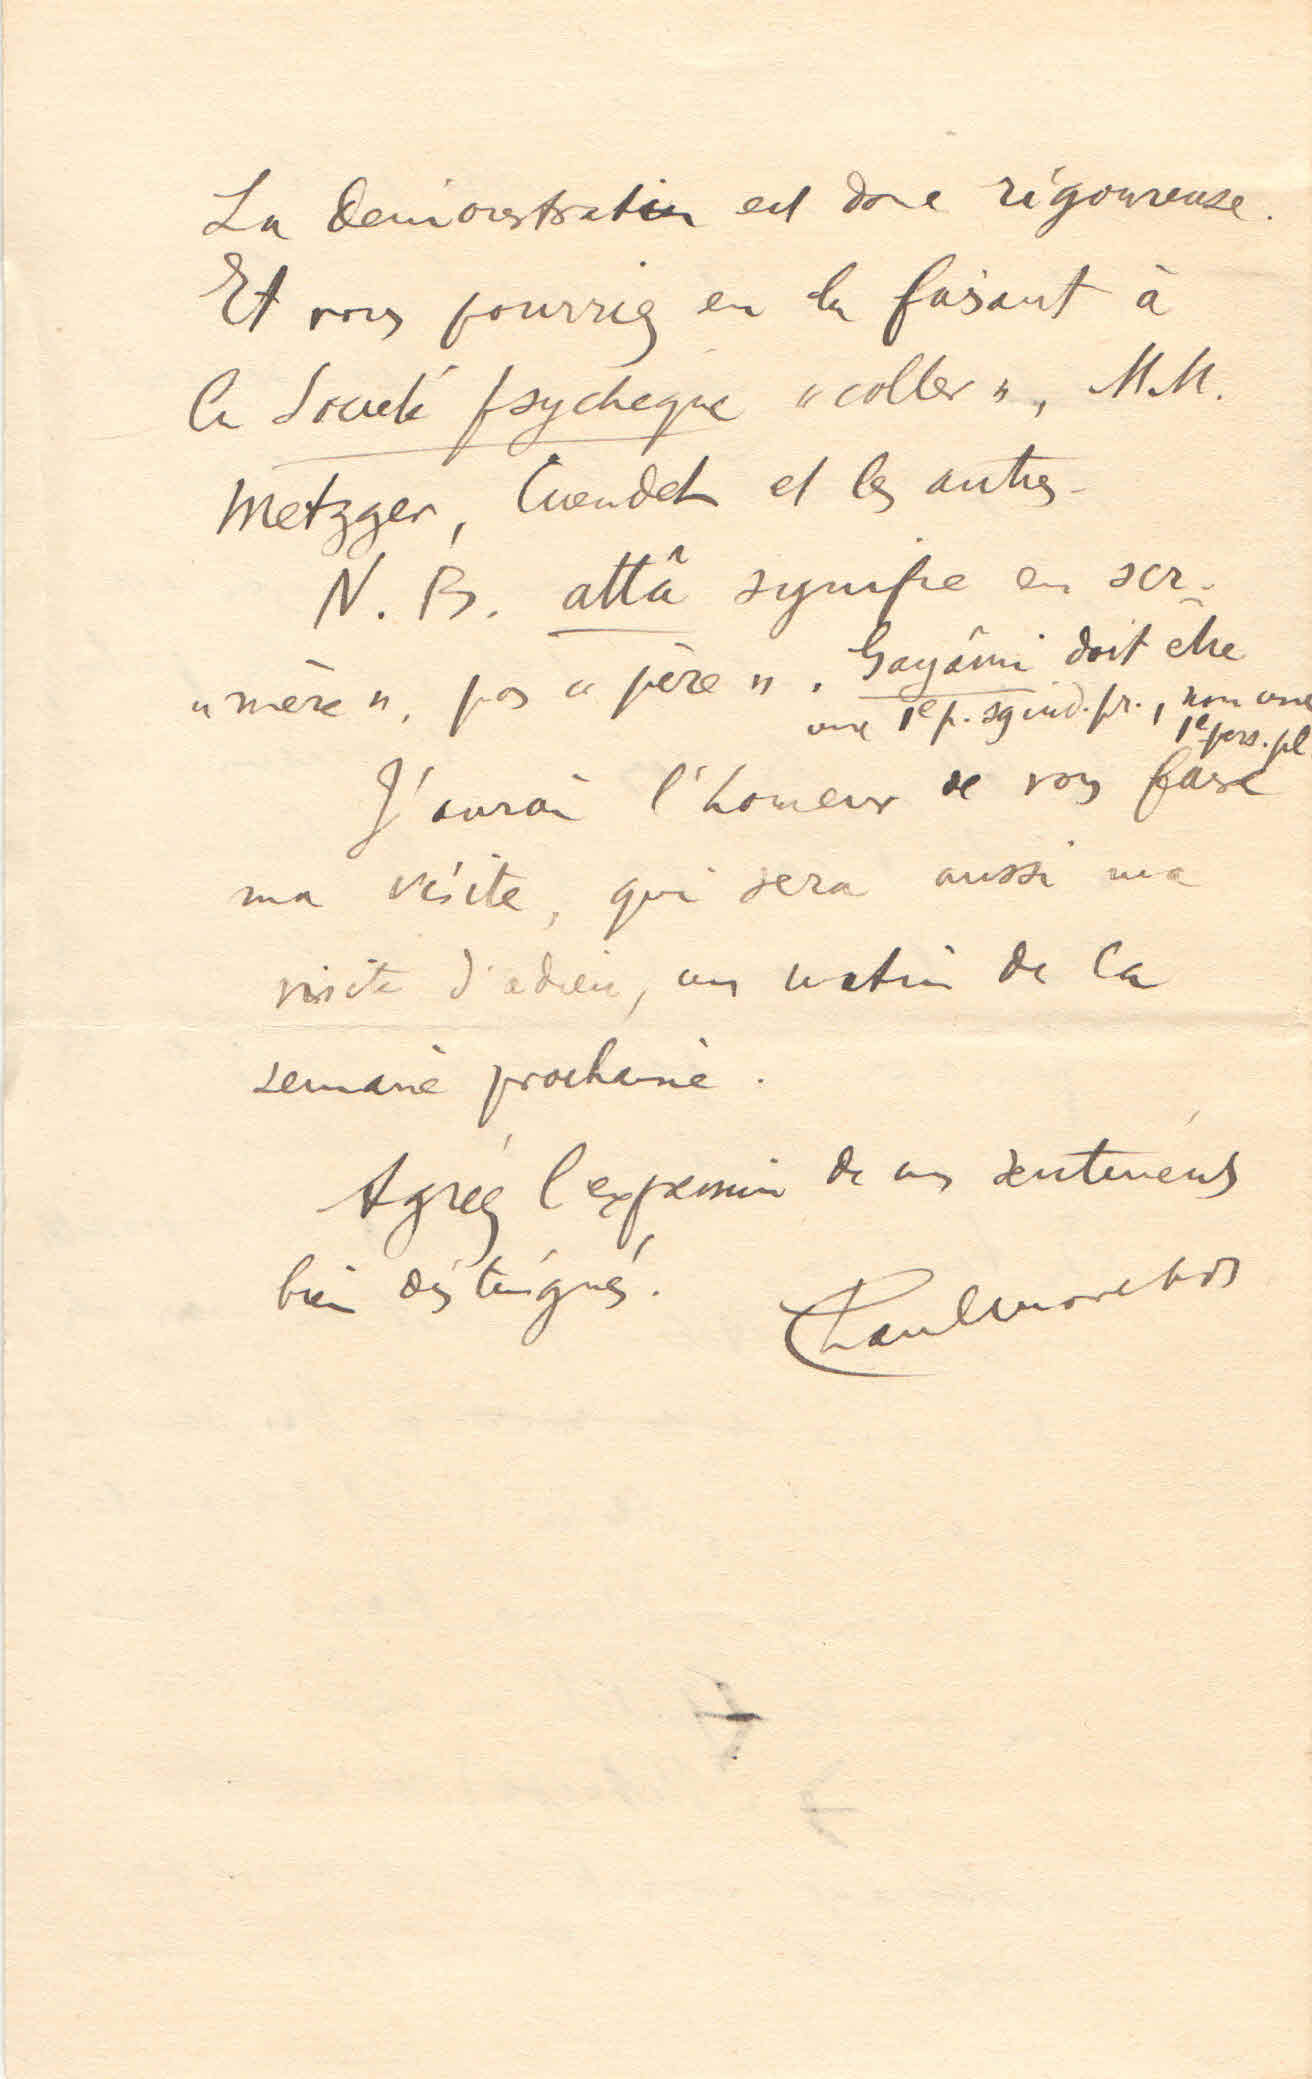 La démonstration est donc rigoureuse.
Et vous pourriez en la faisant à
la Société psychique « coller », MM.
Metzger, Cuendet et les autres.
N. B. attâ signifie en scr.
« mère », pas « père ». Gayâmi doit être
une 1e p. sg ind. pr., non une
1e pers. pl
J'aurai l'honneur de vous faire
ma visite, qui sera aussi ma
visite d'adieu, un matin de la
semaine prochaine.
Agréez l'expression de mes sentiments
bien distingués.